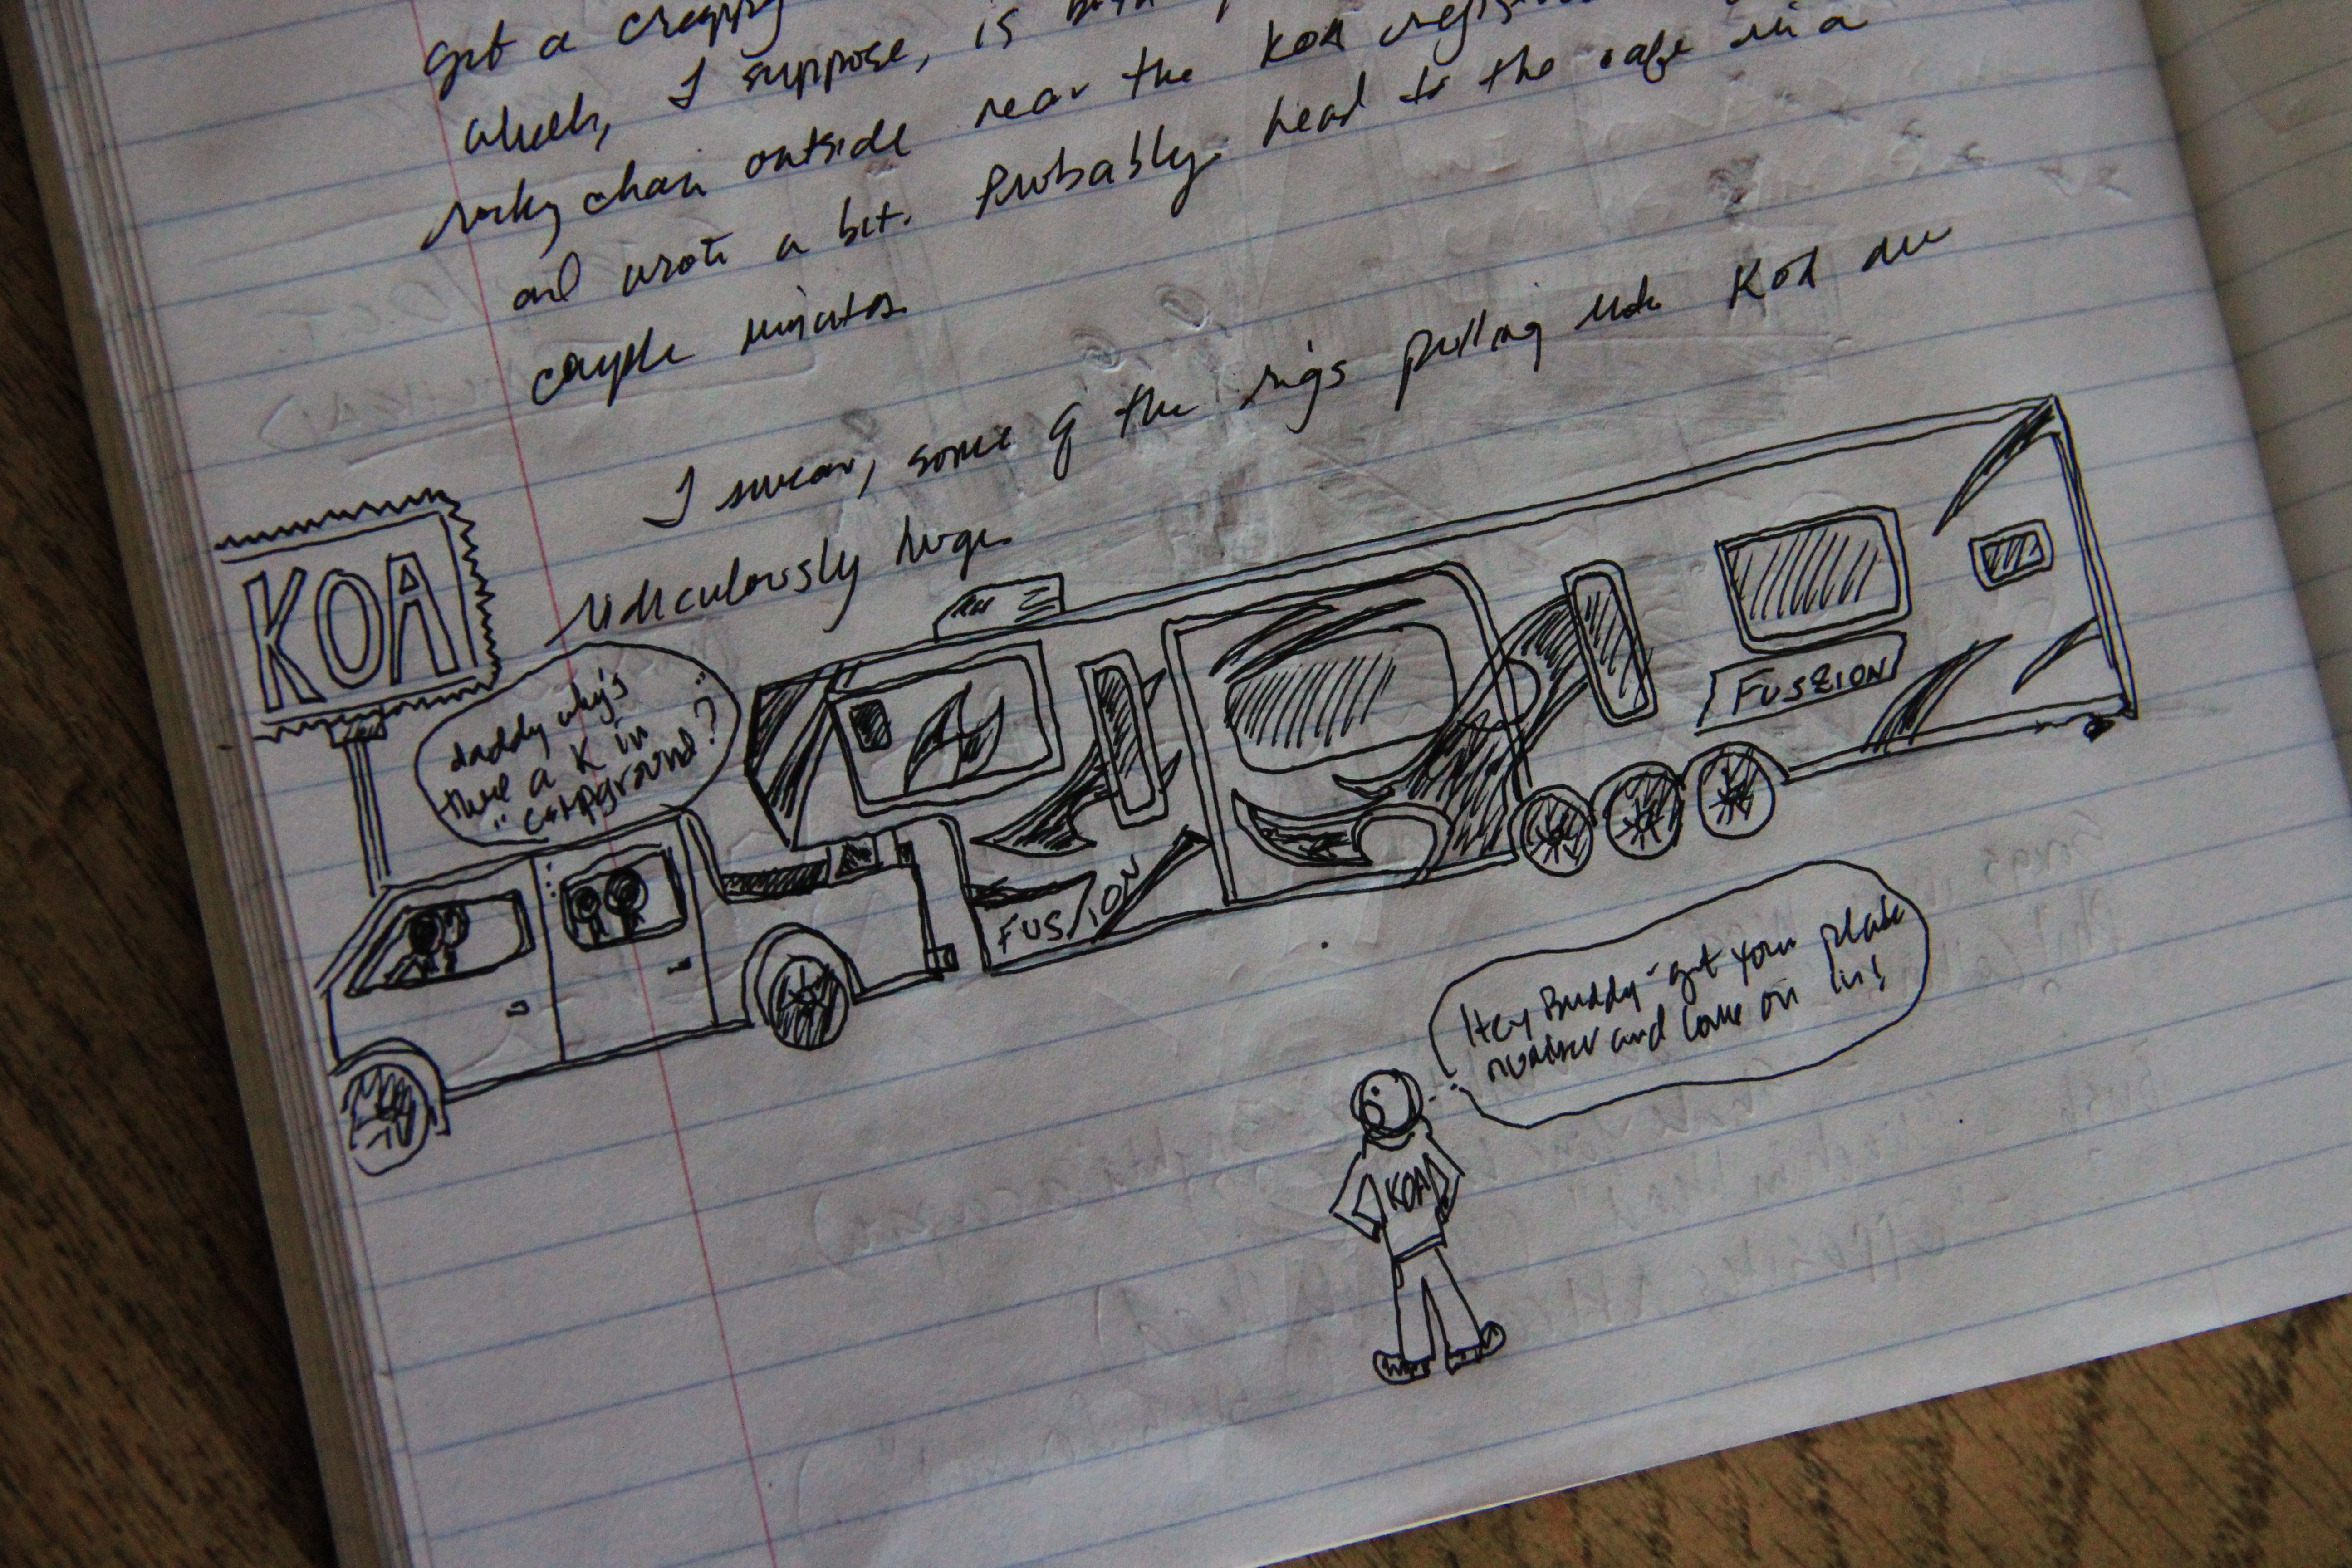 got a crappy
which, I suppose, is
rocky chair outside near the KOA
and wrote a bit. Probably head to the cafe in a
couple minutes.
I swear, some of the rigs pulling into KOA are
ridiculously huge.
KOA
daddy why's
there a K in
"campground"?
FUSION
FUSZION
Hey Buddy - get your plate
number and come on in!
KOA